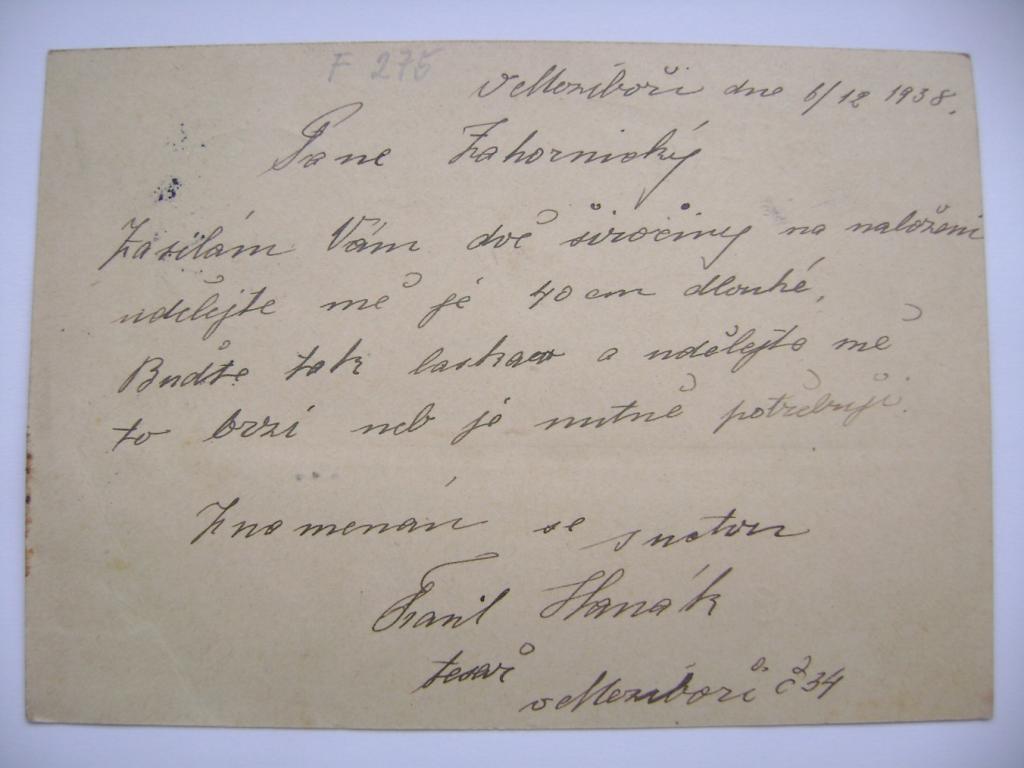 F 275
v Meziboři dne 6/12 1938.
Pane Zahornický
Zasílám Vám dvě širočiny na naložení
udělejte mě je 40 cm dlouhé,
Buďte tak laskav a udělejte mě
to brzi neb je nutně potřebuji.
Znamenán se s uctou
Hanák
tesař
v Meziboři č 34